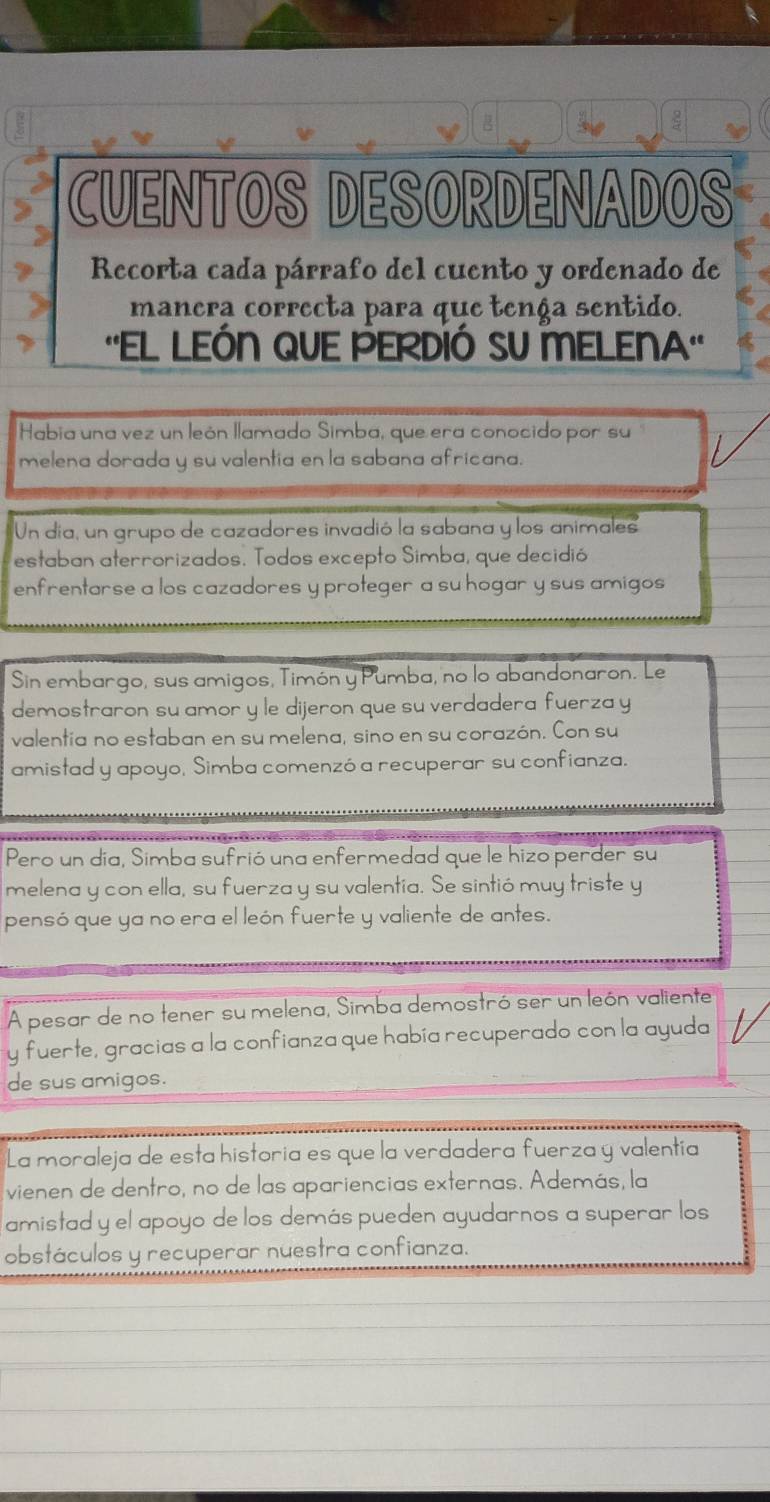 Tema
Día
Mes
Año
CUENTOS DESORDENADOS
Recorta cada párrafo del cuento y ordenado de
manera correcta para que tenga sentido.
"EL LEÓN QUE PERDIÓ SU MELENA"
Habia una vez un león llamado Simba, que era conocido por su
melena dorada y su valentia en la sabana africana.
Un dia, un grupo de cazadores invadió la sabana y los animales
estaban aterrorizados. Todos excepto Simba, que decidió
enfrentarse a los cazadores y proteger a su hogar y sus amigos
Sin embargo, sus amigos, Timón y Pumba, no lo abandonaron. Le
demostraron su amor y le dijeron que su verdadera fuerza y
valentia no estaban en su melena, sino en su corazón. Con su
amistad y apoyo, Simba comenzó a recuperar su confianza.
Pero un dia, Simba sufrió una enfermedad que le hizo perder su
melena y con ella, su fuerza y su valentía. Se sintió muy triste y
pensó que ya no era el león fuerte y valiente de antes.
A pesar de no tener su melena, Simba demostró ser un león valiente
y fuerte, gracias a la confianza que había recuperado con la ayuda
de sus amigos.
La moraleja de esta historia es que la verdadera fuerza y valentía
vienen de dentro, no de las apariencias externas. Además, la
amistad y el apoyo de los demás pueden ayudarnos a superar los
obstáculos y recuperar nuestra confianza.